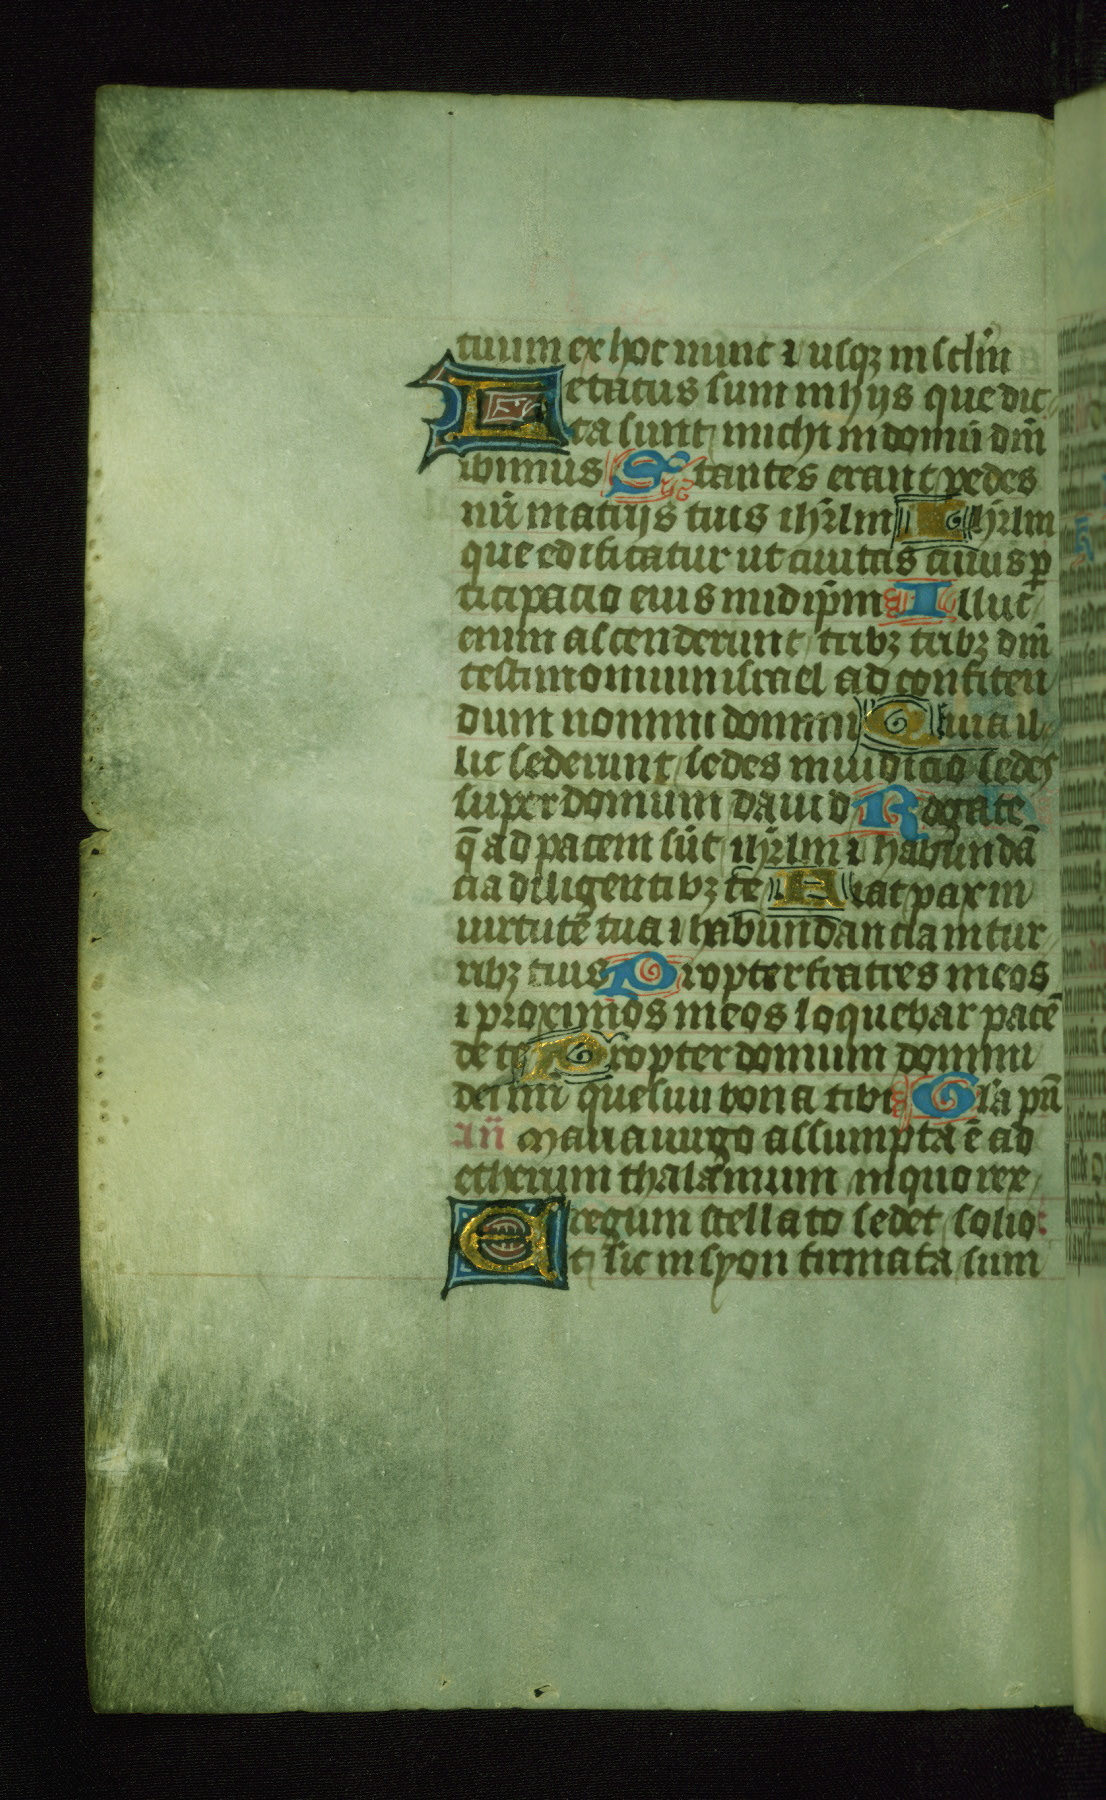 tuum ex hoc nunc ⁊ usqꝫ in sclm̄
Letatus sum in hijs que dic
ta sunt michi in domū dm̄
ibimus Stantes erant pedes
nr̄i in atrijs tuis ihrl̄m Ihrl̄m
que edificatur ut ciuitas cuius ꝑ
ticipacio eius in idip̄m Illuc
enim ascenderunt tribꝫ tribꝫ dm̄
testimonium israel ad confiten
dum nomini domini Quia il
lic sederunt sedes in iudicio sedes
super domum dauid Rogate
q̄ ad pacem sūt ihrl̄m ⁊ habundā
cia diligentibꝫ te Fiat pax in
uirtute tua ⁊ habundancia in tur
ribꝫ tuis Propter fratres meos
⁊ proximos meos loquebar pacē
de te Propter domum domini
dei nr̄i quesiui bona tibi Gl'a pr̄i
an̄ Maria uirgo assumpta ē ad
etherium thalamum in quo rex
regum stellato sedet solio
Et sic in syon firmata sum